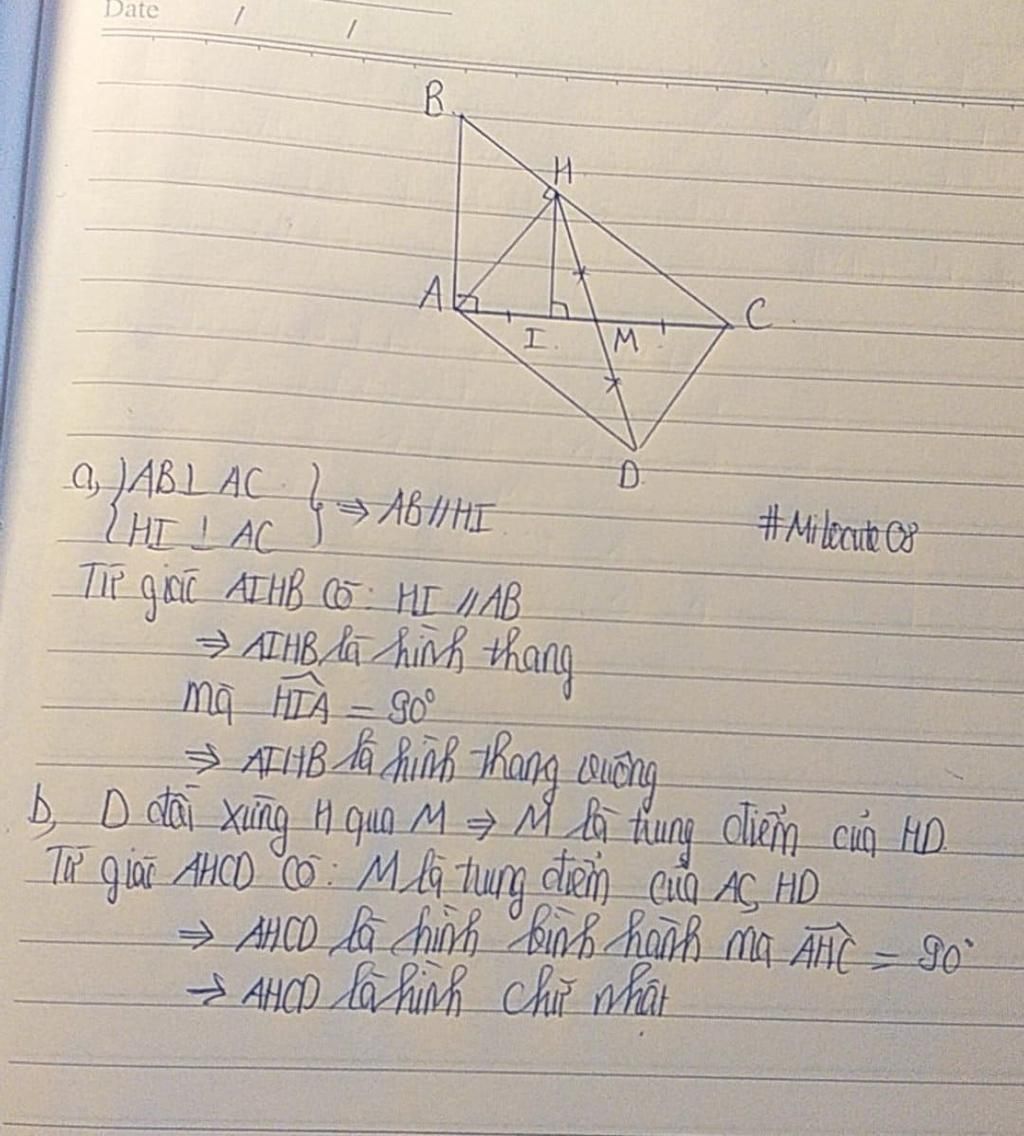 Date / /
B
H
A
C
I
M
D
a, {AB ⊥ AC
{HI ⊥ AC } ⇒ AB // HI
#Milocute08
Tứ giác AIHB có: HI // AB
⇒ AIHB là hình thang
mà HIA = 90°
⇒ AIHB là hình thang vuông
b, D đối xứng H qua M ⇒ M là trung điểm của HD
Tứ giác AHCD có: M là trung điểm của AC, HD
⇒ AHCD là hình bình hành mà AHC = 90°
⇒ AHCD là hình chữ nhật